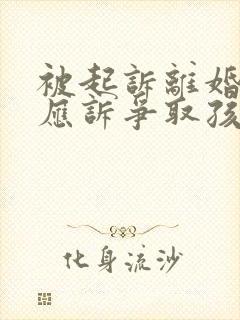 被起訴離婚
應訴爭取孩
化身流沙